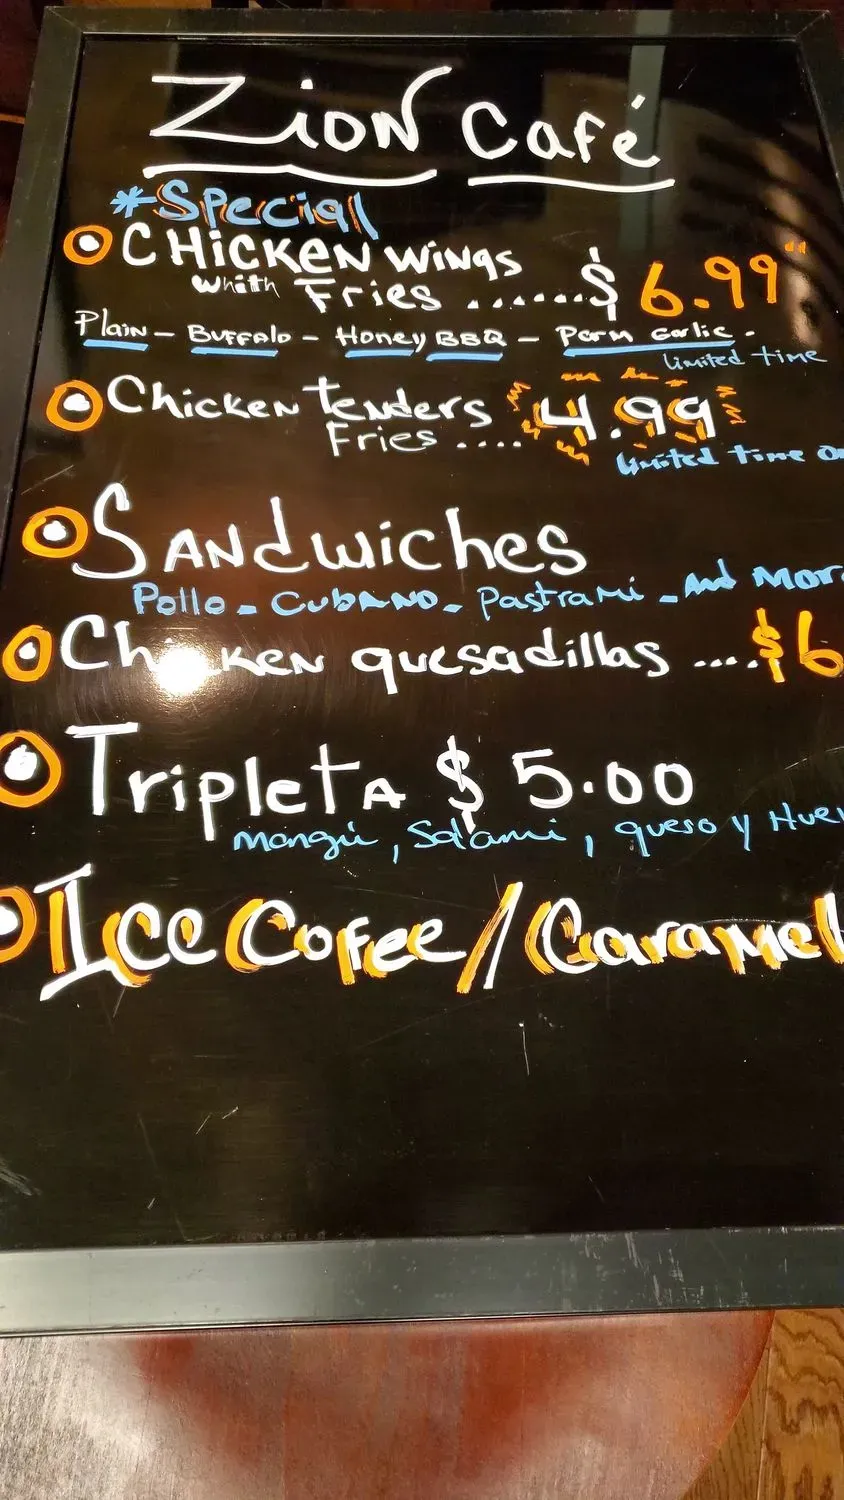 Zion Café
*Special
CHicKeN wiNgs
whith Fries ......$ 6.99"
Plain - Buffalo - Honey BBQ - Parm Garlic -
Limited time
Chicken tenders 4.99
Fries ....
Limited time
SANdwiches
Pollo - CubANO - Pastrami - And Mor
Chicken quesadillas ....$6
TripletA $ 5.00
mangú, Salami, queso y Hue
Ice Cofee / Caramel